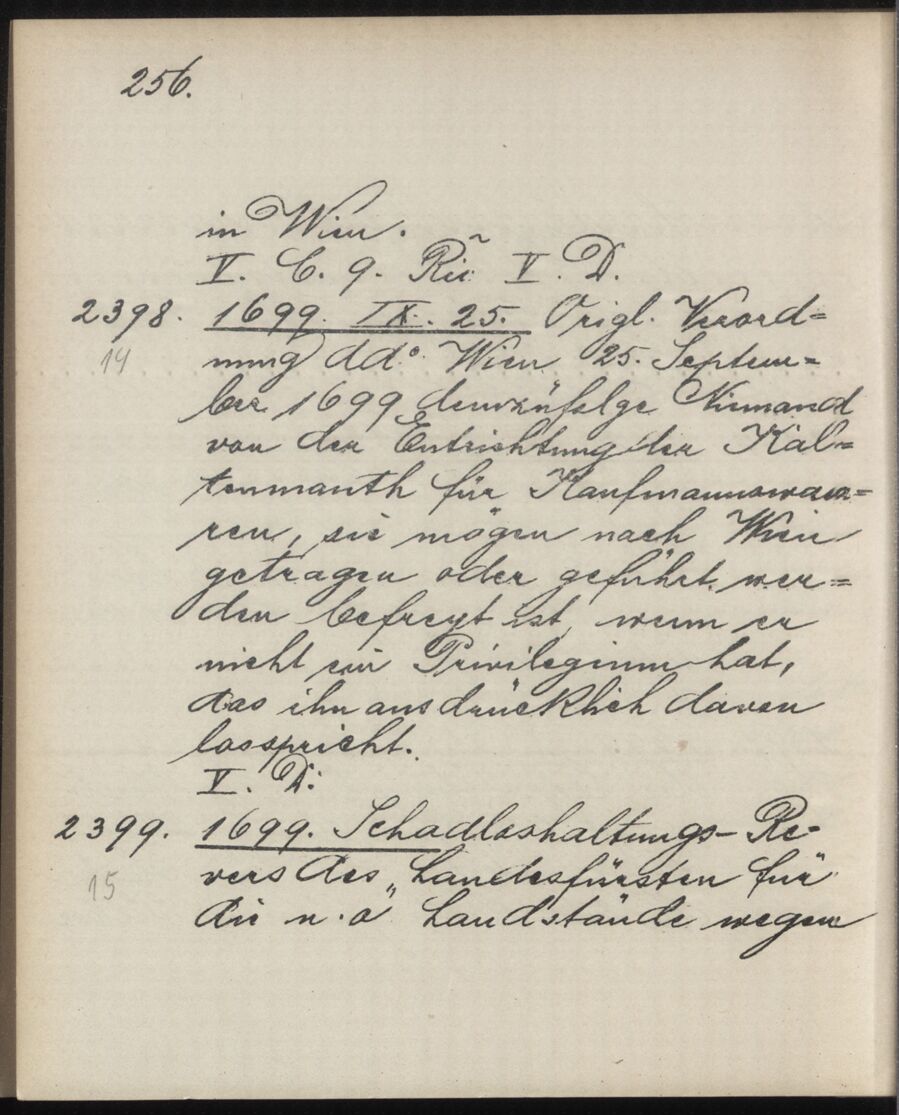 256.
in Wien.
V. C. 9. Ric V. D.
2398. 1699. IX. 25. Origl. Verord=
14 nung dd° Wien 25. Septem=
ber 1699 demzufolge Niemand
von der Entrichtung der Kal=
tenmauth für Kaufmannswaa=
ren, sie mögen nach Wien
getragen oder geführt wer=
den befreyt ist, wenn er
nicht ein Privilegium hat,
das ihn ausdrücklich davon
losspricht.
V. D.
2399. 1699. Schadloshaltungs-Re-
15 vers des Landesfürsten für
die n.ö Landstände wegen